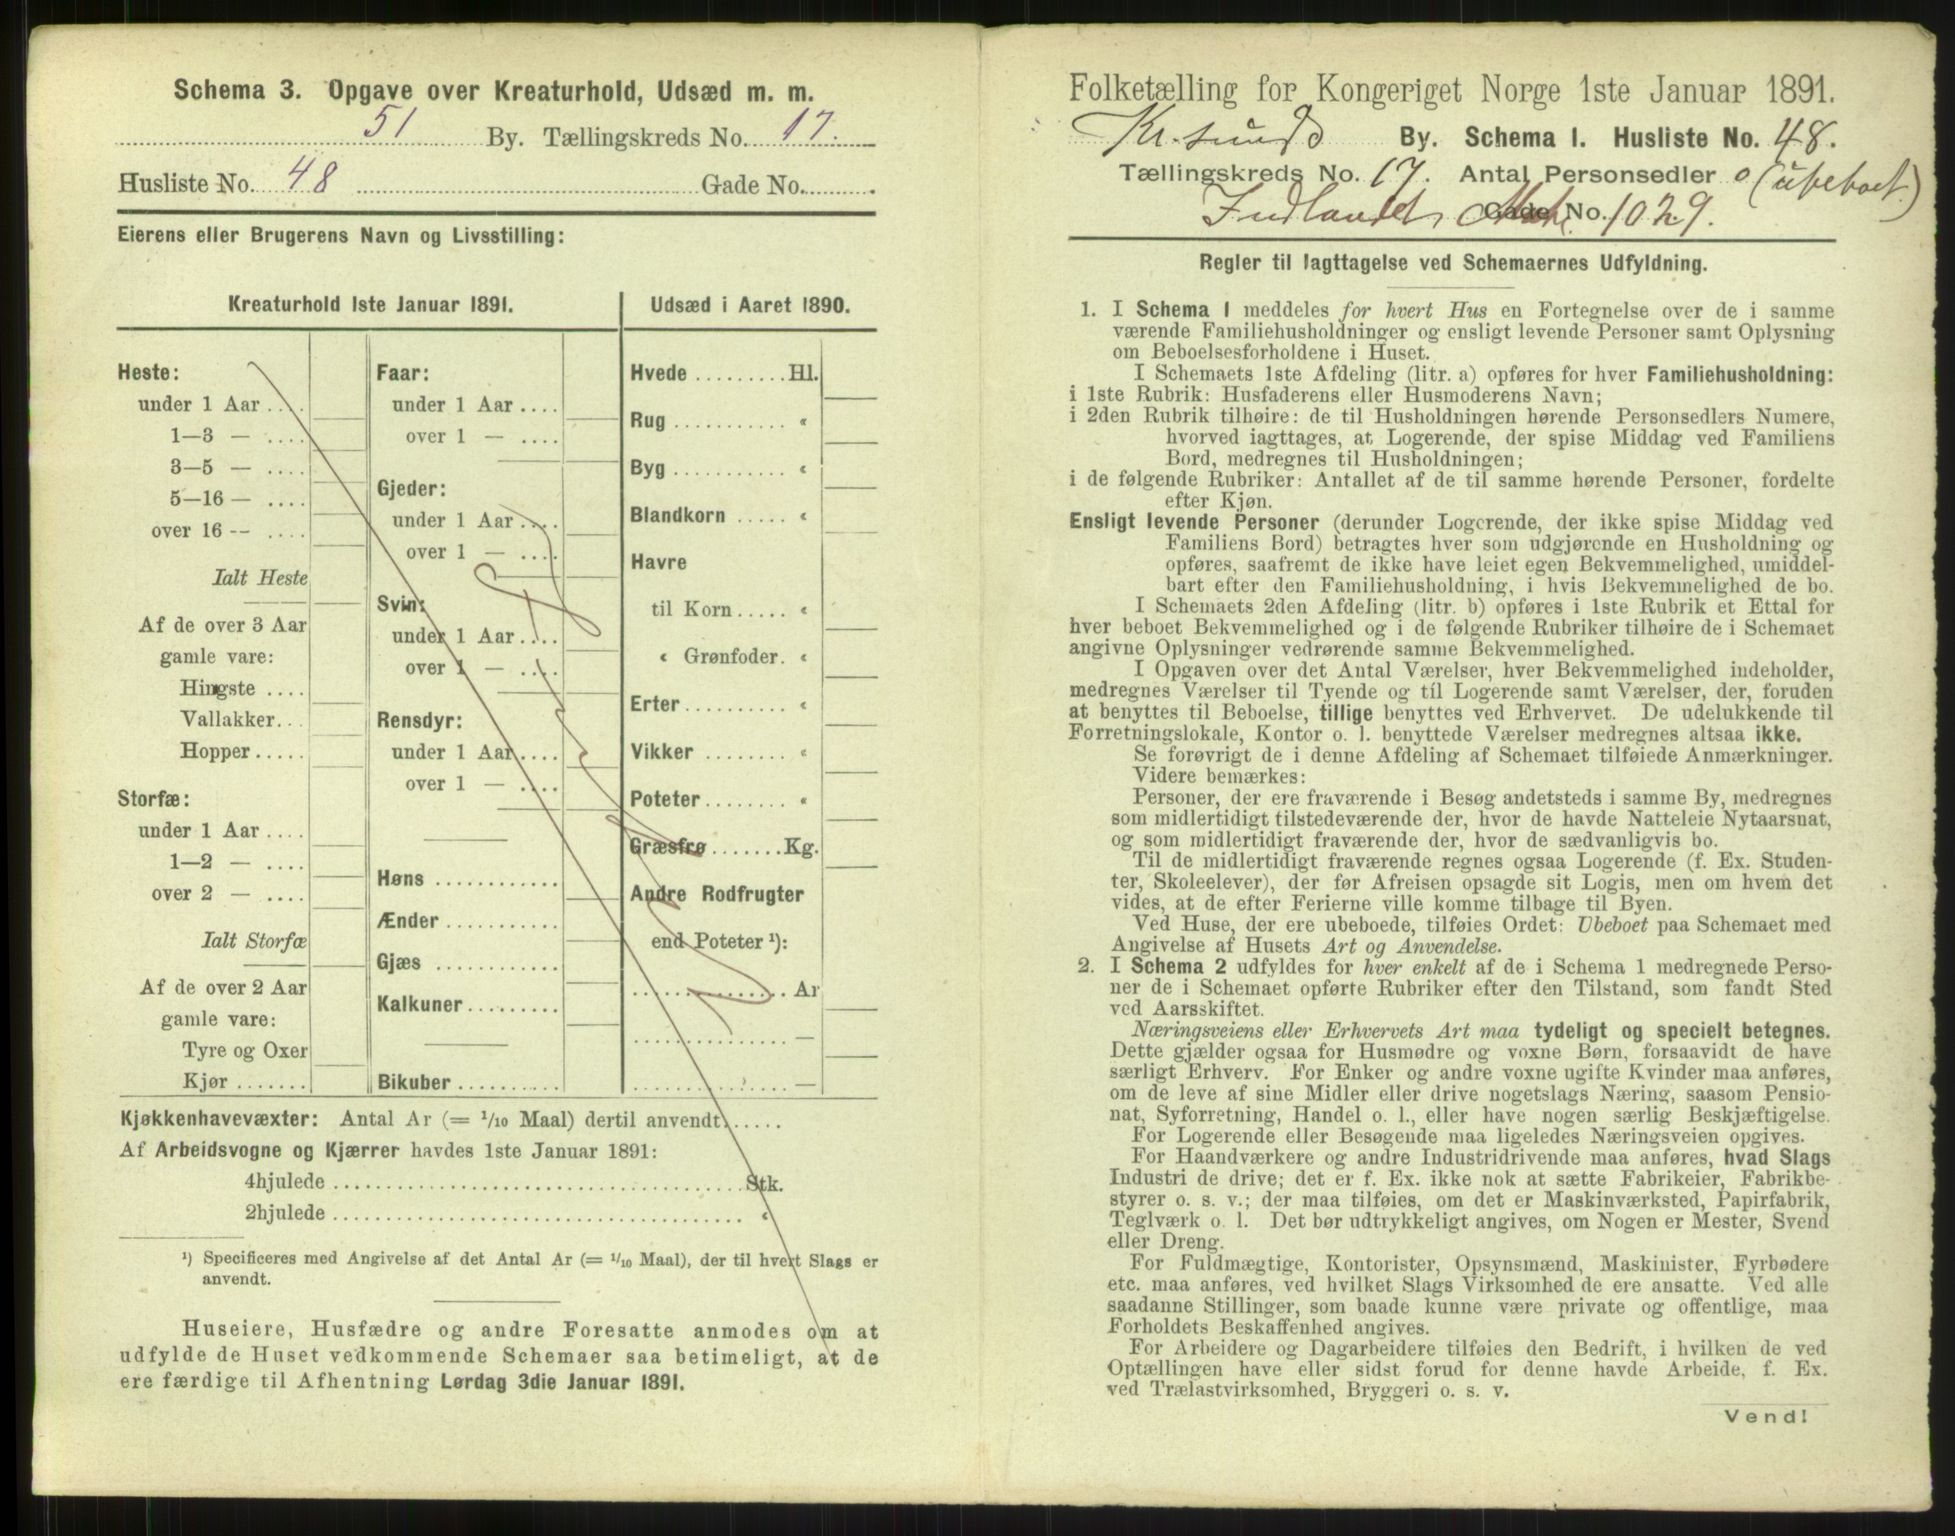 Schema 3. Opgave over Kreaturhold, Udsæd m. m.
51 By. Tællingskreds No. 17.
Husliste No. 48 Gade No.
Eierens eller Brugerens Navn og Livsstilling:
Kreaturhold 1ste Januar 1891.
Heste:
under 1 Aar ....
1—3 — ....
3—5 — ....
5—16 — ....
over 16 — ....
Ialt Heste
Af de over 3 Aar
gamle vare:
Hingste ....
Vallakker...
Hopper.....
Storfæ:
under 1 Aar ....
1—2 — ....
over 2 — ....
Ialt Storfæ
Af de over 2 Aar
gamle vare:
Tyre og Oxer
Kjør .......
Faar:
under 1 Aar ....
over 1 — ....
Gjeder:
under 1 Aar ....
over 1 — ....
Svin:
under 1 Aar ....
over 1 — ....
Rensdyr:
under 1 Aar ....
over 1 — ....
Høns ............
Ænder ...........
Gjæs ............
Kalkuner.........
Bikuber ..........
Udsæd i Aaret 1890.
Hvede .........Hl.
Rug ........... «
Byg ........... «
Blandkorn ..... «
Havre
til Korn ..... «
« Grønfoder. «
Erter.......... «
Vikker ........ «
Poteter........ «
Græsfrø .......Kg.
Andre Rodfrugter
end Poteter ¹):
............... Ar
............... —
............... —
Kjøkkenhavevæxter: Antal Ar (= 1/10 Maal) dertil anvendt......
Af Arbeidsvogne og Kjærrer havdes 1ste Januar 1891:
4hjulede ......................................Stk.
2hjulede ...................................... «
¹) Specificeres med Angivelse af det Antal Ar (= 1/10 Maal), der til hvert Slags er
anvendt.
Huseiere, Husfædre og andre Foresatte anmodes om at
udfylde de Huset vedkommende Schemaer saa betimeligt, at de
ere færdige til Afhentning Lørdag 3die Januar 1891.
Folketælling for Kongeriget Norge 1ste Januar 1891.
Kr.sund By. Schema I. Husliste No. 48.
Tællingskreds No. 17. Antal Personsedler 0 (ubeboet.)
Indlandet Matr. Gade No. 1029.
Regler til Iagttagelse ved Schemaernes Udfyldning.
1. I Schema 1 meddeles for hvert Hus en Fortegnelse over de i samme
værende Familiehusholdninger og ensligt levende Personer samt Oplysning
om Beboelsesforholdene i Huset.
I Schemaets 1ste Afdeling (litr. a) opføres for hver Familiehusholdning:
i 1ste Rubrik: Husfaderens eller Husmoderens Navn;
i 2den Rubrik tilhøire: de til Husholdningen hørende Personsedlers Numere,
hvorved iagttages, at Logerende, der spise Middag ved Familiens
Bord, medregnes til Husholdningen;
i de følgende Rubriker: Antallet af de til samme hørende Personer, fordelte
efter Kjøn.
Ensligt levende Personer (derunder Logerende, der ikke spise Middag ved
Familiens Bord) betragtes hver som udgjørende en Husholdning og
opføres, saafremt de ikke have leiet egen Bekvemmelighed, umiddel-
bart efter den Familiehusholdning, i hvis Bekvemmelighed de bo.
I Schemaets 2den Afdeling (litr. b) opføres i 1ste Rubrik et Ettal for
hver beboet Bekvemmelighed og i de følgende Rubriker tilhøire de i Schemaet
angivne Oplysninger vedrørende samme Bekvemmelighed.
I Opgaven over det Antal Værelser, hver Bekvemmelighed indeholder,
medregnes Værelser til Tyende og til Logerende samt Værelser, der, foruden
at benyttes til Beboelse, tillige benyttes ved Erhvervet. De udelukkende til
Forretningslokale, Kontor o. l. benyttede Værelser medregnes altsaa ikke.
Se forøvrigt de i denne Afdeling af Schemaet tilføiede Anmærkninger.
Videre bemærkes:
Personer, der ere fraværende i Besøg andetsteds i samme By, medregnes
som midlertidigt tilstedeværende der, hvor de havde Natteleie Nytaarsnat,
og som midlertidigt fraværende der, hvor de sædvanligvis bo.
Til de midlertidigt fraværende regnes ogsaa Logerende (f. Ex. Studen-
ter, Skoleelever), der før Afreisen opsagde sit Logis, men om hvem det
vides, at de efter Ferierne ville komme tilbage til Byen.
Ved Huse, der ere ubeboede, tilføies Ordet: Ubeboet paa Schemaet med
Angivelse af Husets Art og Anvendelse.
2. I Schema 2 udfyldes for hver enkelt af de i Schema 1 medregnede Perso-
ner de i Schemaet opførte Rubriker efter den Tilstand, som fandt Sted
ved Aarsskiftet.
Næringsveiens eller Erhvervets Art maa tydeligt og specielt betegnes.
Dette gjælder ogsaa for Husmødre og voxne Børn, forsaavidt de have
særligt Erhverv. For Enker og andre voxne ugifte Kvinder maa anføres,
om de leve af sine Midler eller drive nogetslags Næring, saasom Pensio-
nat, Syforretning, Handel o. l., eller have nogen særlig Beskjæftigelse.
For Logerende eller Besøgende maa ligeledes Næringsveien opgives.
For Haandværkere og andre Industridrivende maa anføres, hvad Slags
Industri de drive; det er f. Ex. ikke nok at sætte Fabrikeier, Fabrikbe-
styrer o. s. v.; der maa tilføies, om det er Maskinværksted, Papirfabrik,
Teglværk o. l. Det bør udtrykkeligt angives, om Nogen er Mester, Svend
eller Dreng.
For Fuldmægtige, Kontorister, Opsynsmænd, Maskinister, Fyrbødere
etc. maa anføres, ved hvilket Slags Virksomhed de ere ansatte. Ved alle
saadanne Stillinger, som baade kunne være private og offentlige, maa
Forholdets Beskaffenhed angives.
For Arbeidere og Dagarbeidere tilføies den Bedrift, i hvilken de ved
Optællingen have eller sidst forud for denne havde Arbeide, f. Ex.
ved Trælastvirksomhed, Bryggeri o. s. v.
Vend!